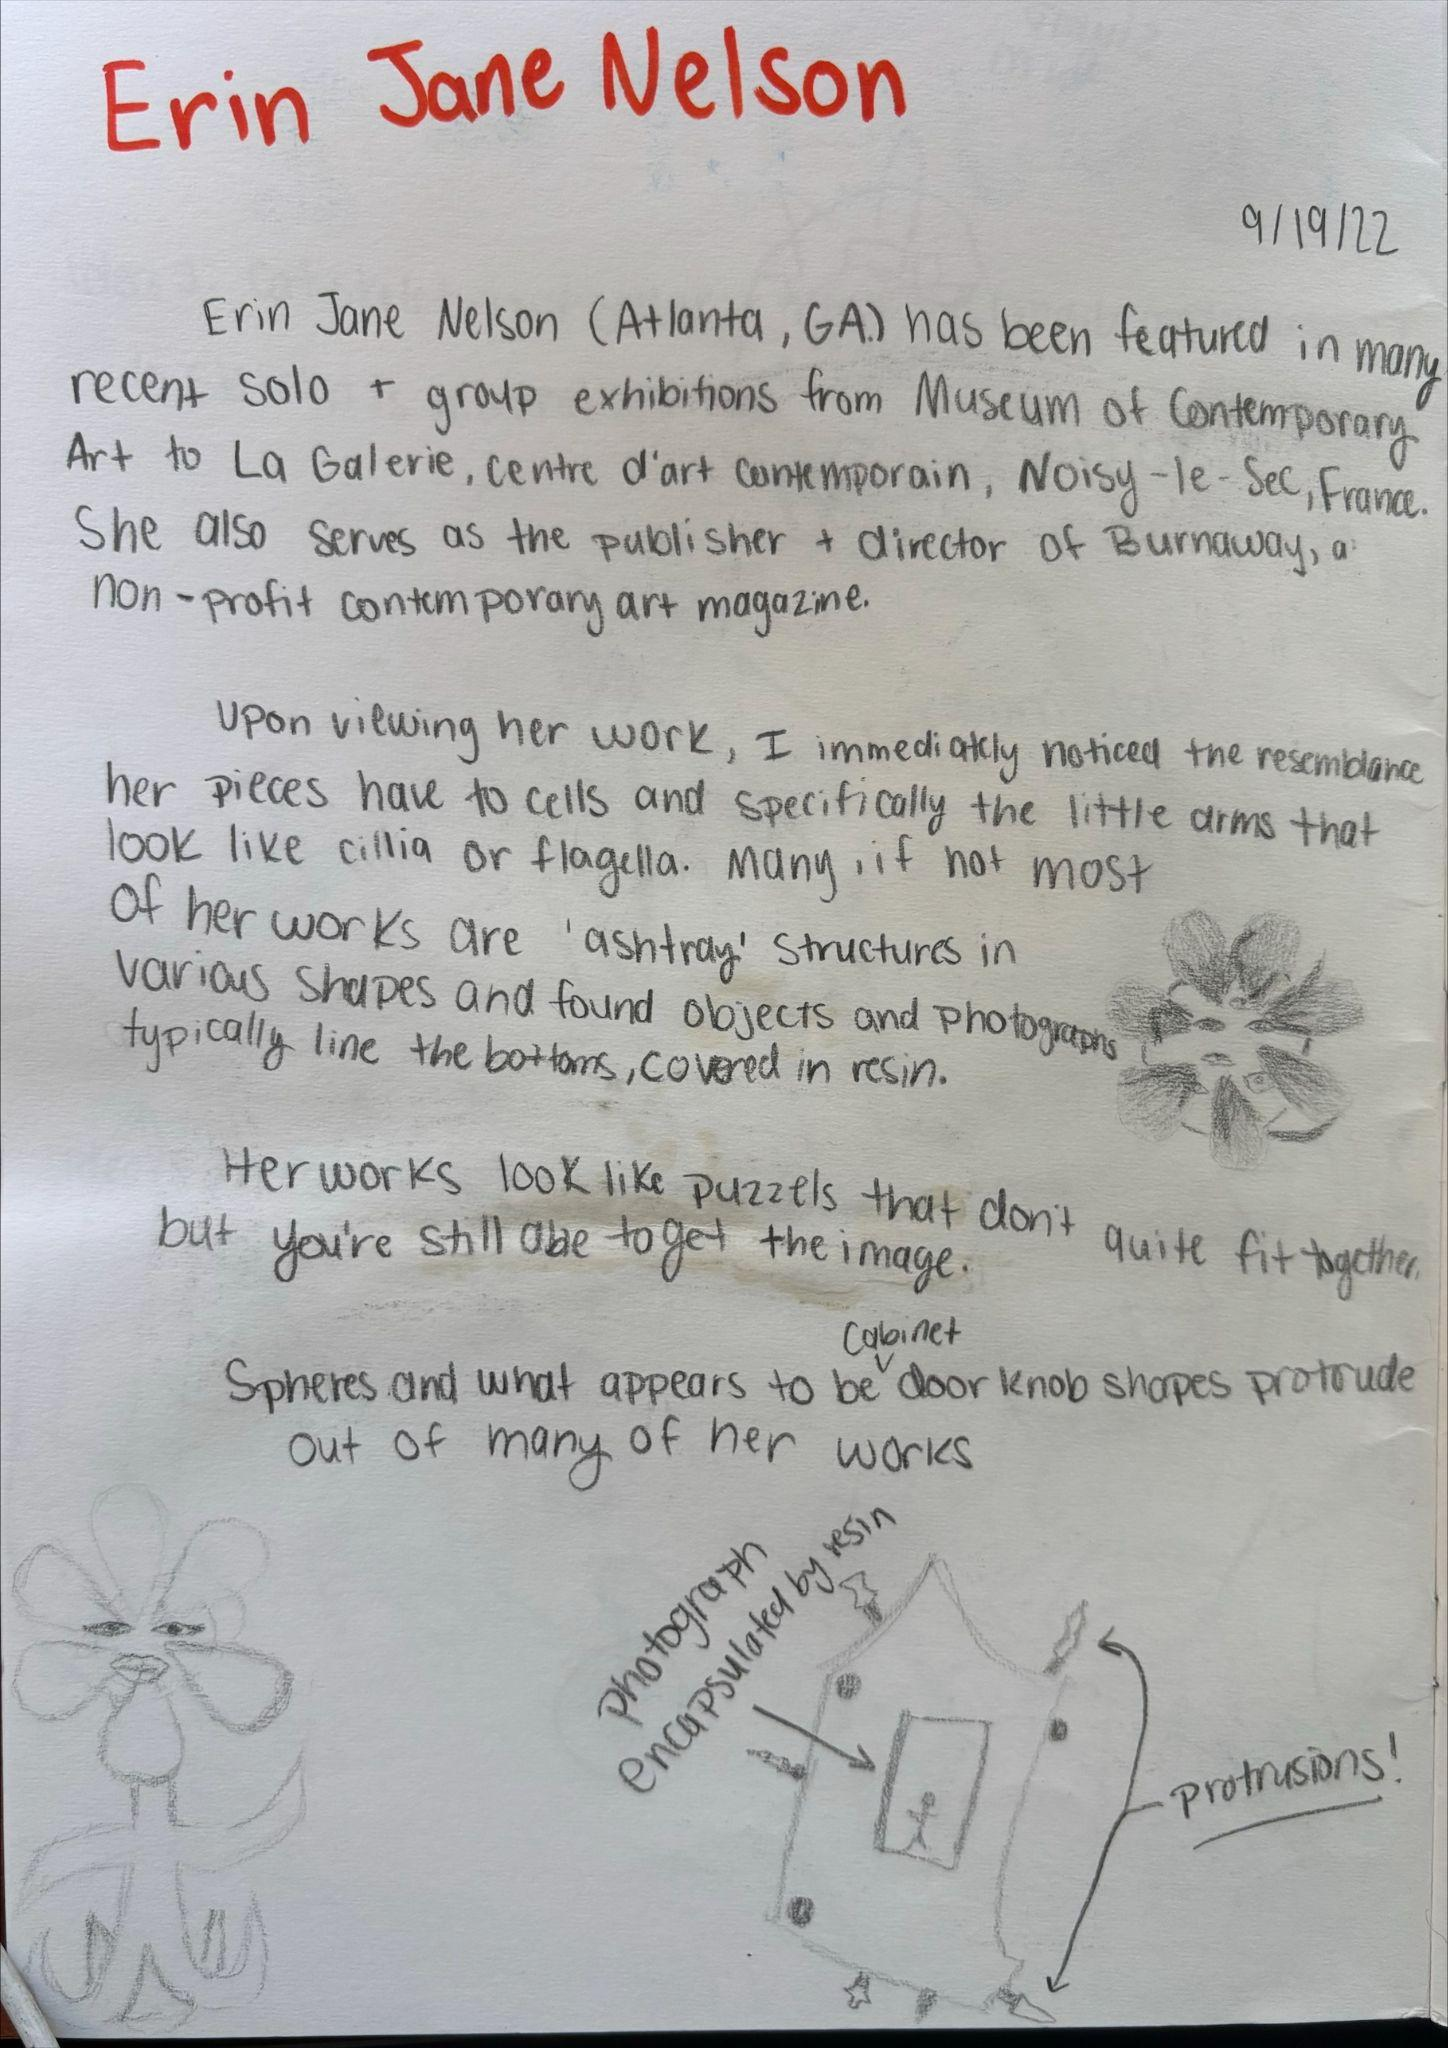 Erin Jane Nelson
9/19/22
Erin Jane Nelson (Atlanta, GA.) has been featured in many
recent solo + group exhibitions from Museum of Contemporary
Art to La Galerie, centre d'art contemporain, Noisy-le-Sec, France.
She also serves as the publisher + director of Burnaway, a
non-profit contemporary art magazine.
Upon viewing her work, I immediatly noticed the resemblance
her pieces have to cells and specifically the little arms that
look like cillia or flagella. Many, if not most
of her works are 'ashtray' structures in
various shapes and found objects and photographs
typically line the bottoms, covered in resin.
Her works look like puzzels that don't quite fit together,
but you're still abe to get the image.
cabinet
Spheres and what appears to be door knob shapes protrude
out of many of her works
photograph
encapsulated by resin
protrusions!